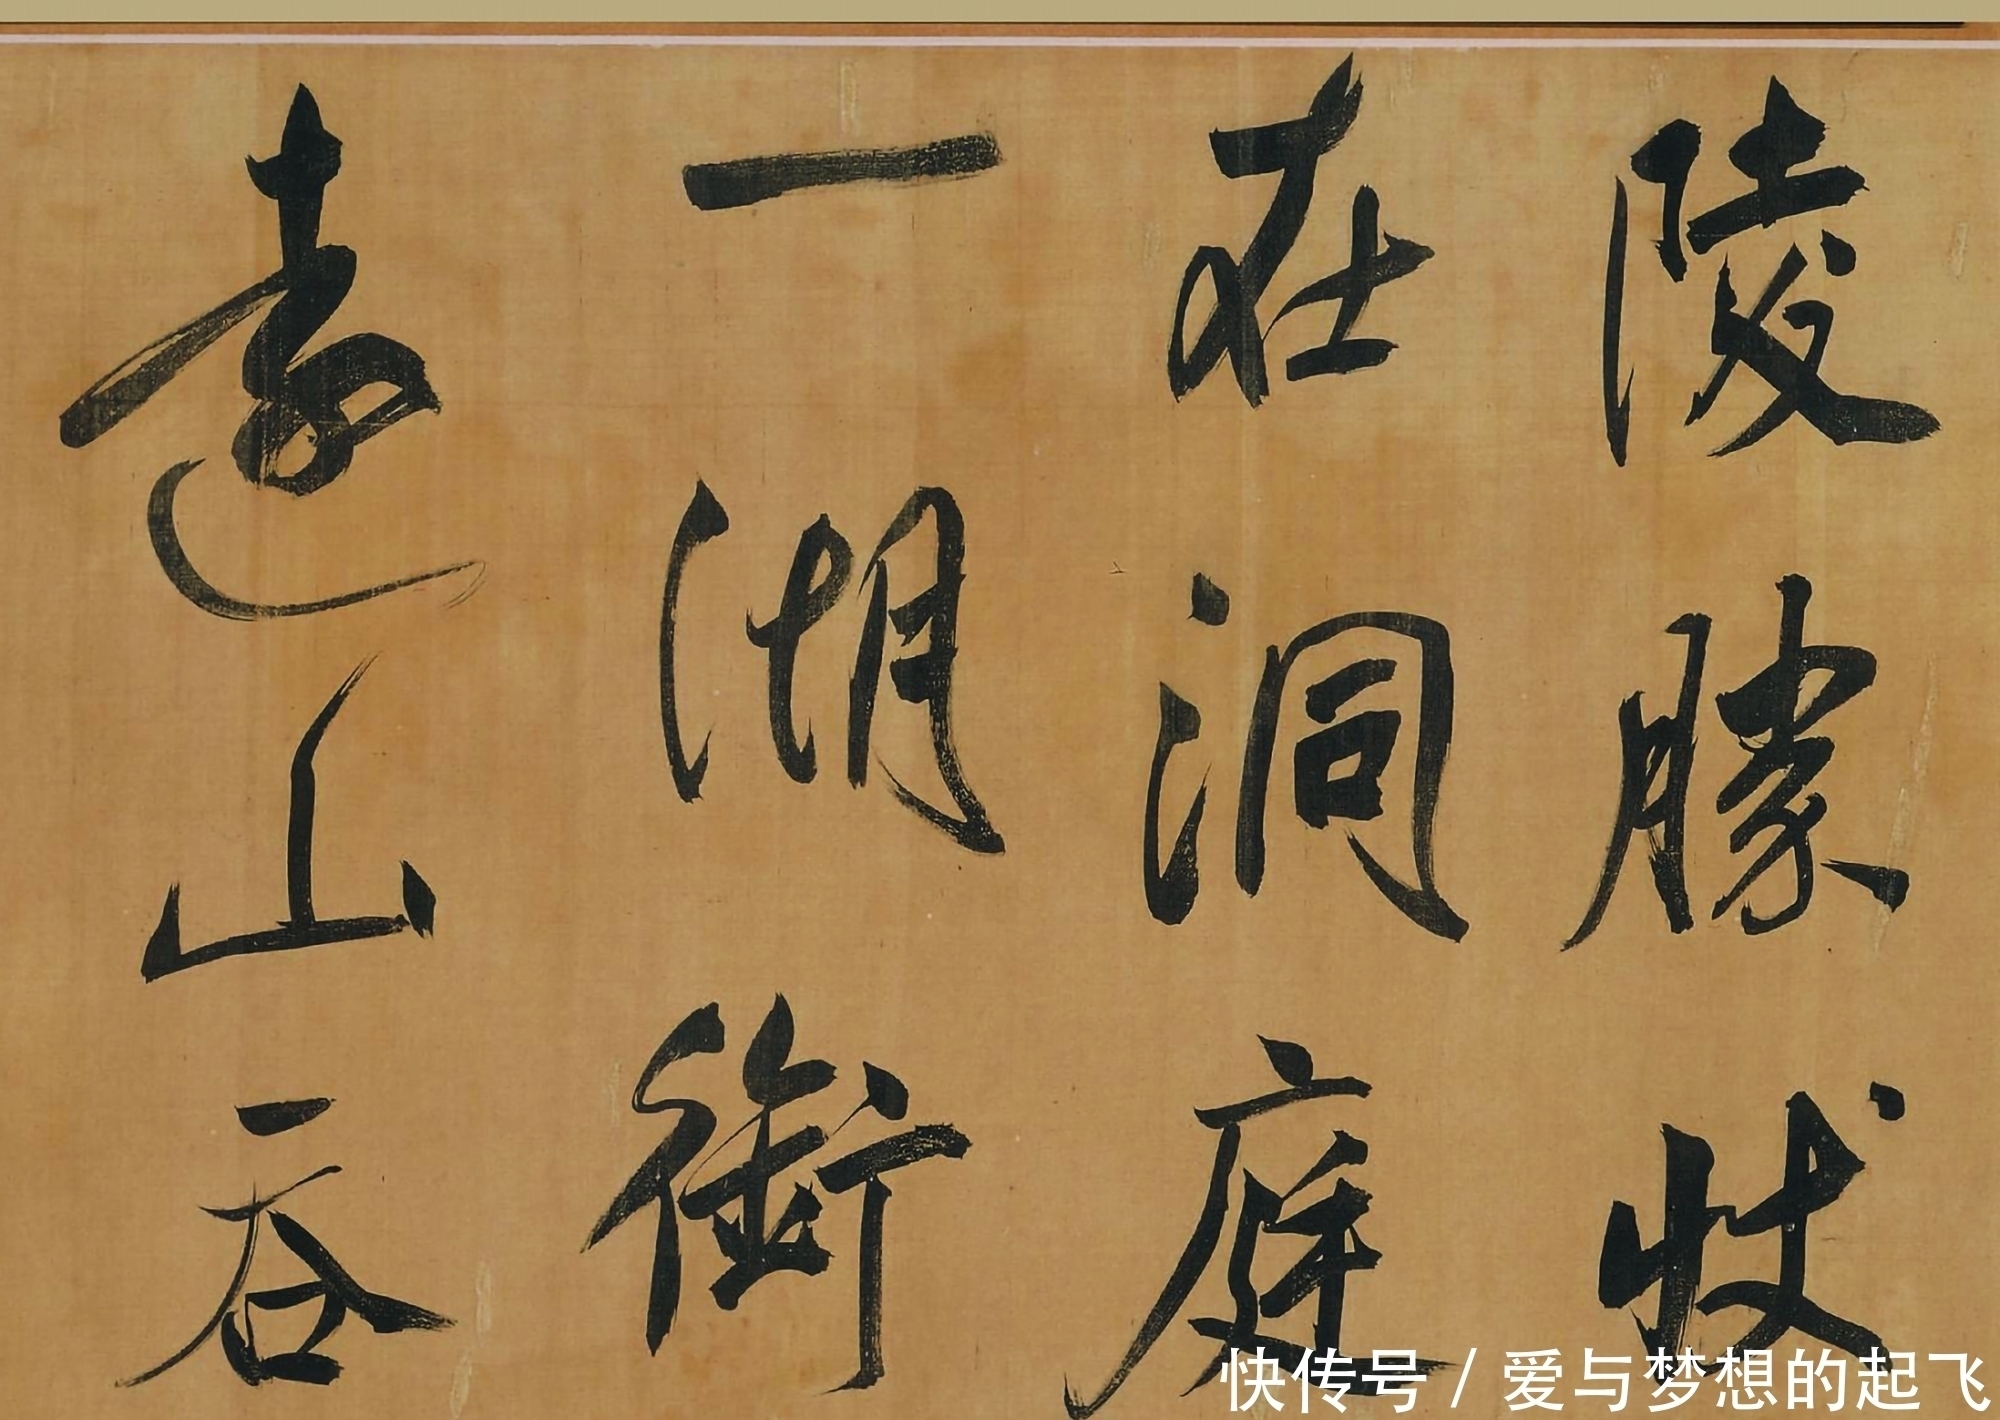 陵勝狀
在洞庭
一湖銜
遠山吞
快传号 / 爱与梦想的起飞